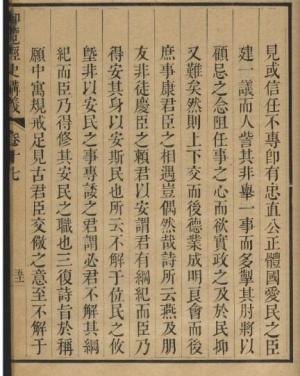 見或信任不專即有忠直公正體國愛民之臣
建一議而人訾其非舉一事而多掣其肘將以
顧忌之念阻任事之心而欲實政之及於民抑
又難矣然則上下交而後德業成明良會而後
庶事康君臣之相遇豈偶然哉詩所云燕及朋
友非徒慶臣之賴君以安謂君有綱紀而臣乃
得安其身以安斯民也所云不解于位民之攸
墍非以安民之事專諉之君謂必君不解其綱
紀而臣乃得修其安民之職也三復詩旨於稱
願中寓規戒足見古君臣交儆之意至不解于
御覽經史講義
卷十七